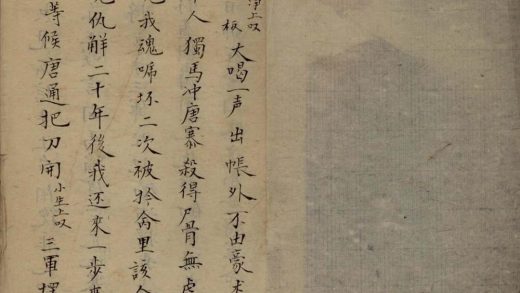 上叹
板大喝一声出帳外不由豪
人獨馬冲唐寨殺得尸骨無
我魂唬坏二次被拎禽里該
仇解二十年後我还來一步來
等候唐通把刀開小生上叹三軍